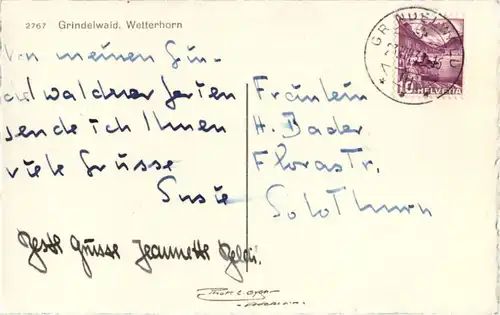 2767 Grindelwald. Wetterhorn
Von meinen Grin-
delwaldner Ferien
sende ich Ihnen
viele Grüsse
Susie
Beste Grüsse Jeannette
Fräulein
H. Bader
Florastr.
Solothurn
GRINDELWALD
10 HELVETIA